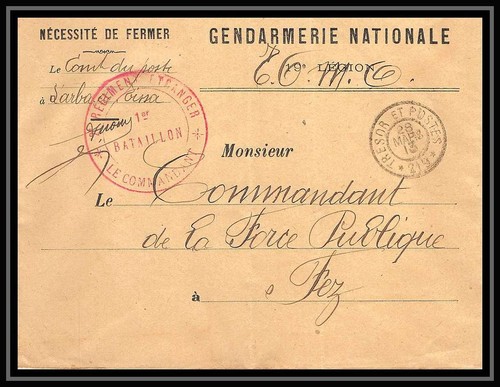 NÉCESSITÉ DE FERMER
GENDARMERIE NATIONALE
19e LÉGION
T. O. M. O.
Le Comt du poste
à L'arba Tissa
RÉGIMENT ÉTRANGER
1er
BATAILLON
LE COMMANDANT
TRESOR ET POSTES
28
MARS
13
* 215 *
Monsieur
Le Commandant
de La Force Publique
à Fez